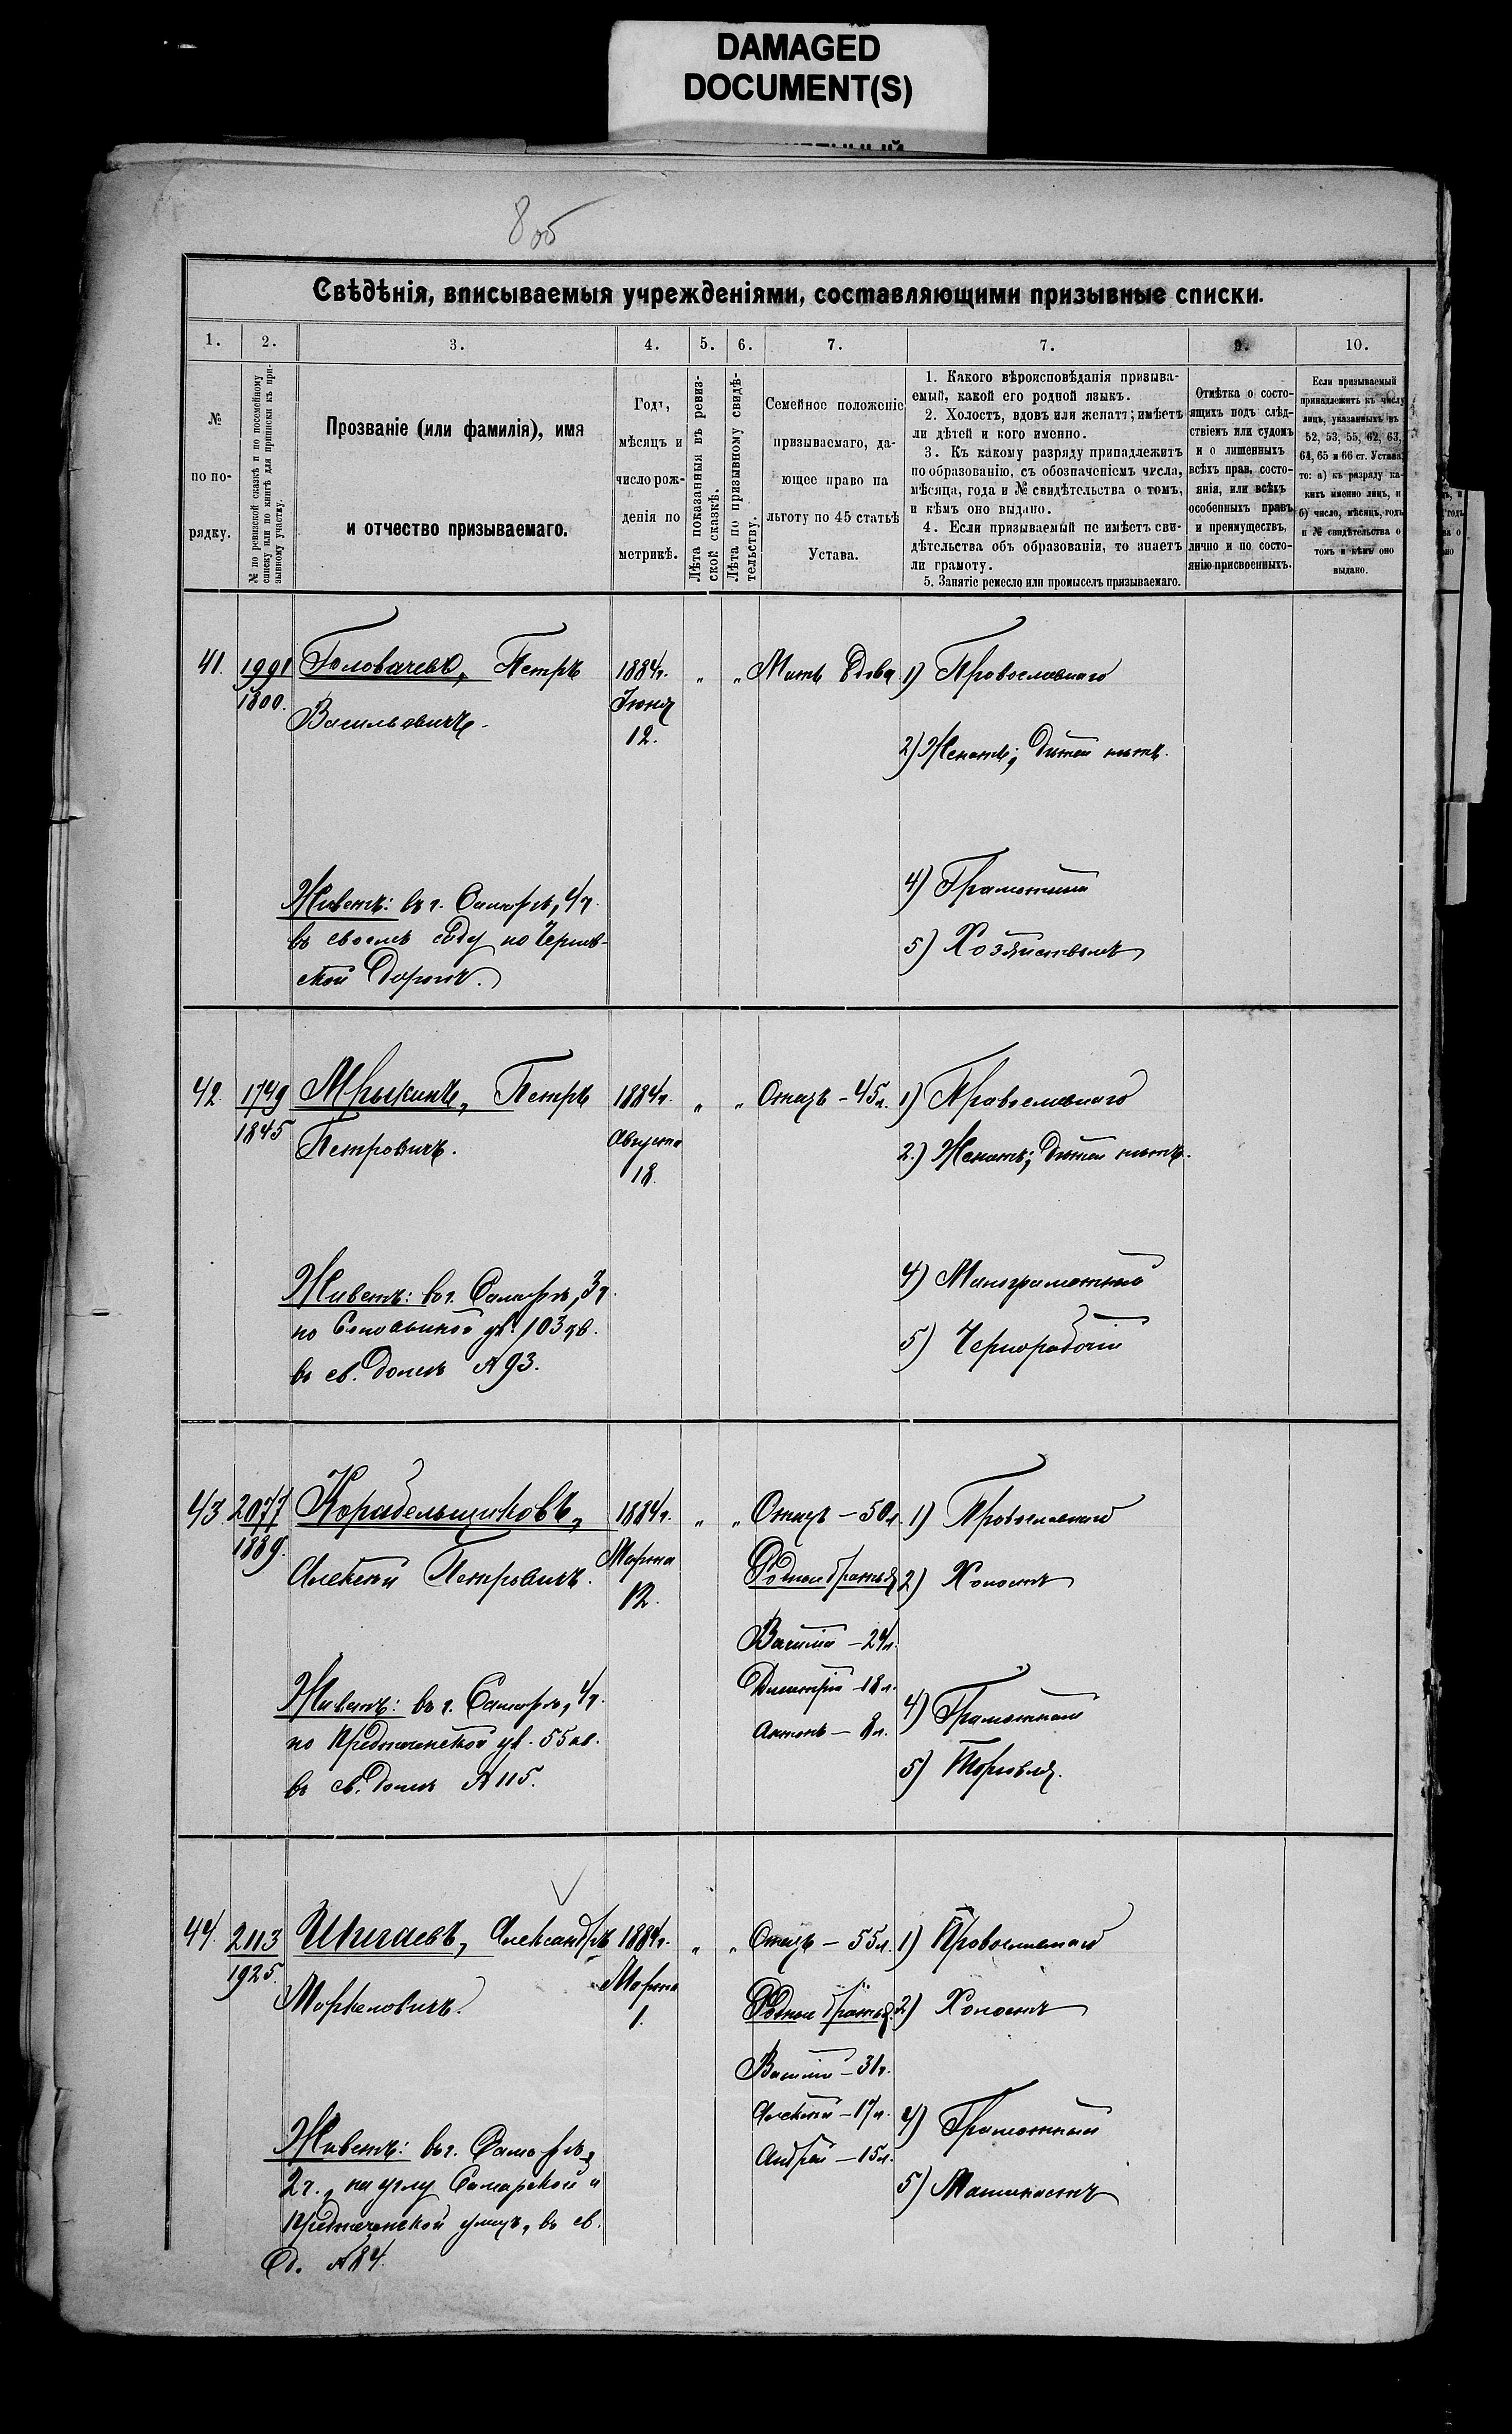 DAMAGED
DOCUMENT(S)
8 об
Свѣдѣнія, вписываемыя учрежденіями, составляющими призывные списки.
1. 2. 3. 4. 5. 6. 7. 7. 9. 10.
№
по по-
рядку.
№ по ревизской сказкѣ и по посемейному
списку или по книгѣ для приписки къ при-
зывному участку.
Прозваніе (или фамилія), имя
и отчество призываемаго.
Годъ,
мѣсяцъ и
число рож-
денія по
метрикѣ.
Лѣта показанныя въ ревиз-
ской сказкѣ.
Лѣта по призывному свидѣ-
тельству.
Семейное положеніе
призываемаго, да-
ющее право на
льготу по 45 статьѣ
Устава.
1. Какого вѣроисповѣданія призыва-
емый, какой его родной языкъ.
2. Холостъ, вдовъ или женатъ; имѣетъ
ли дѣтей и кого именно.
3. Къ какому разряду принадлежитъ
по образованію, съ обозначеніемъ числа,
мѣсяца, года и № свидѣтельства о томъ,
и кѣмъ оно выдано.
4. Если призываемый не имѣетъ сви-
дѣтельства объ образованіи, то знаетъ
ли грамоту.
5. Занятіе ремесло или промыселъ призываемаго.
Отмѣтка о состо-
ящихъ подъ слѣд-
ствіемъ или судомъ
и о лишенныхъ
всѣхъ прав. состо-
янія, или всѣхъ
особенныхъ правъ
и преимуществъ,
лично и по состо-
янію присвоенныхъ.
Если призываемый
принадлежитъ къ числу
лицъ, указанныхъ въ
52, 53, 55, 62, 63,
64, 65 и 66 ст. Устава
то: а) къ разряду ка-
кихъ именно лицъ, и
б) число, мѣсяцъ, годъ
и № свидѣтельства о
томъ и кѣмъ оно
выдано.
41. 1991 Головачевъ, Петръ 1884г. " " Мать вдова 1) Православнаго
1800. Васильевичъ. Іюня
12. 2) Женатъ; дѣтей нѣтъ.
4) Грамотный
Живетъ: въ г. Самарѣ, 4ч.
въ своемъ саду по
ской дорогѣ. 5) Хозяйствомъ
42. 1749 Мрыкинъ, Петръ 1884г. " " Отецъ – 45л. 1) Православнаго
1845 Петровичъ. Августа 2.) Женатъ; дѣтей нѣтъ.
18.
4) Малограмотный
Живетъ: въ г. Самарѣ, 3ч.
по ул. 103 кв. 5) Чернорабочій
въ св. домѣ № 93.
43. 2077 Корабельщиковъ, 1884г. " " Отецъ – 50л. 1) Православнаго
1889. Алексѣй Петровичъ. Марта Родные братья 2) Холостъ
12.
Василій – 24л.
Живетъ: въ г. Самарѣ, 4ч. Дмитрій – 18л. 4) Грамотный
по Предтеченской ул. 55 кв. Антонъ – 8л.
въ св. домѣ № 115. 5) Торговля.
44. 2113 Шигаевъ, Александръ 1884г. " " Отецъ – 55л. 1) Православнаго
1925. Маркеловичъ. Марта Родные братья. 2) Холостъ
1.
Василій – 31г.
Алексѣй – 17л. 4) Грамотный
Живетъ: въ г. Самарѣ, Андрей – 15л.
2ч., на углу Самарской и 5) Машинистъ
Предтеченской улицъ, въ св.
д. № 84.